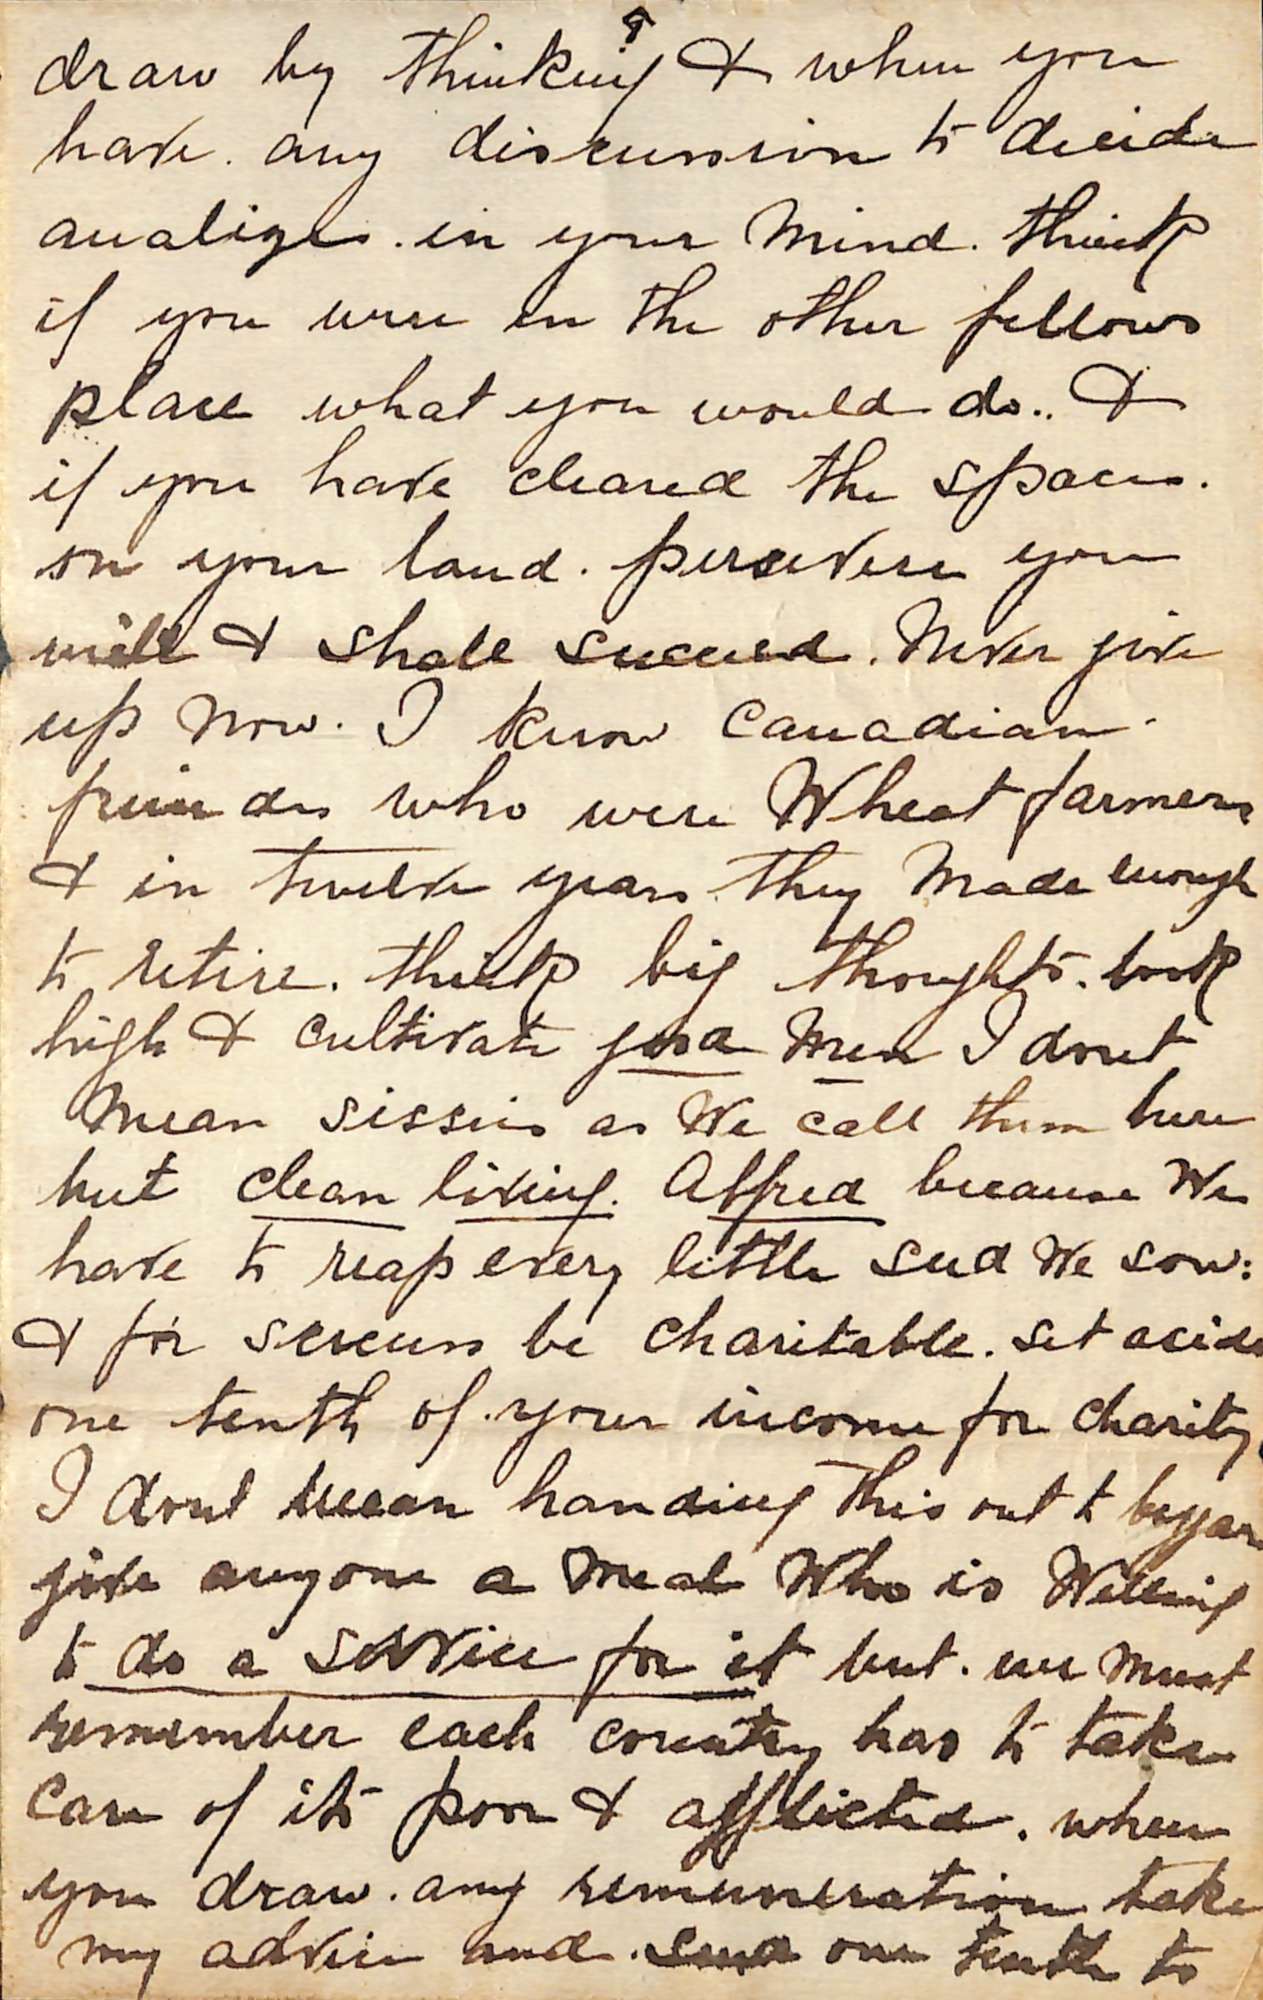 9
draw by thinking & when you
have. any discussion to decide
analize. in your Mind. think
if you were in the other fellows
place what you would do.. &
if you have cleared the spaces.
on your land. persevere you
will & shall succeed. Never give
up Now. I know Canadian.
friends who were Wheat farmers
& in twelve years they Made enough
to retire. think big thoughts. look
high & cultivate good Men I dont
Mean sissies as We call them here
but clean living. Alfred because We
have to reap every little seed We sow:
& for success be charitable. set acide
one tenth of your income for charity
I dont Mean handing this out to beggars
give anyone a Meal Who is Willing
to do a service for it but. we Must
remember each country has to take
care of its poor & afflicted. when
you draw. any remuneration take
my advice and. send one tenth to